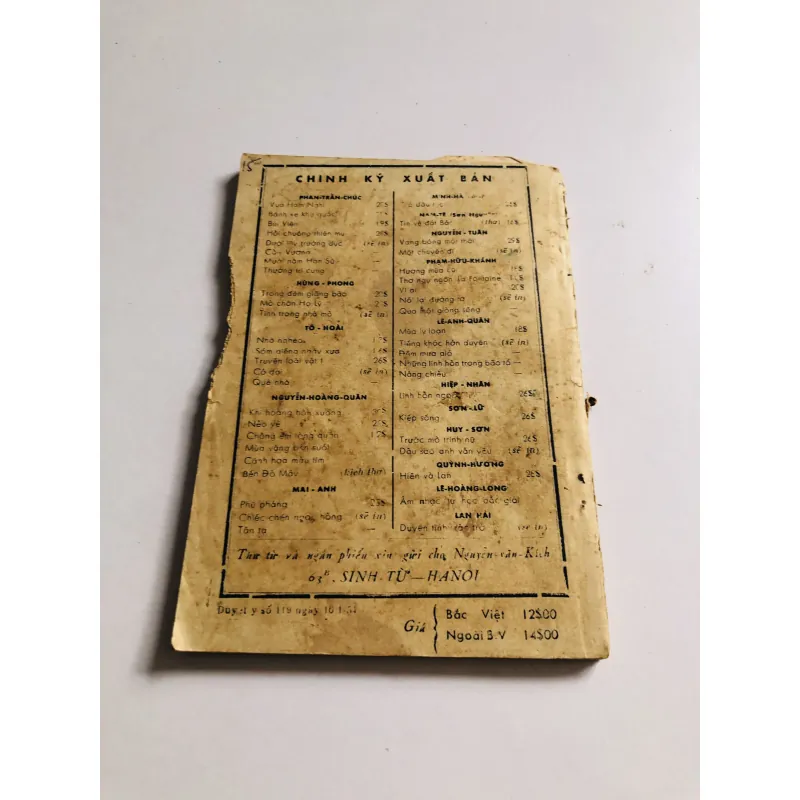 15
CHÍNH KÝ XUẤT BẢN
PHAN-TRẦN-CHÚC
Vua Hàm Nghi 25$
Bánh vẽ khu quốc
Bùi Viện 19$
Hồi chuông thiên mụ 25$
Dưới lũy trường dực (sẽ in)
Cần Vương —
Mười năm Hàn Sử —
Thưởng tri cung —
HÙNG - PHONG
Trong đêm giông bão 20$
Mò chôn Hạ Lý 20$
Tình trong nhà mồ (sẽ in)
TÔ - HOÀI
Nhà nghèo
Xóm giếng ngày xưa
Truyện loài vật 1 26$
Cỏ dại (sẽ in)
Quê nhà —
NGUYỄN-HOÀNG-QUÂN
Khi hoàng hôn xuống
Nẻo về
Chồng em tòng quân
Mùa vàng bên suối
Cánh hoa màu tím
Bến Đò Mây (kịch thơ)
MAI - ANH
Phũ phàng 25$
Chiếc chén ngọc hồng (sẽ in)
Tàn tạ —
MINH-HÀ
NAM-TÊ (Sơn
Tin về đất Bắc (thơ) 12$
NGUYỄN - TUÂN
Vang bóng một thời 25$
Một chuyến đi (sẽ in)
PHẠM-HỮU-KHÁNH
Hương mùa cũ
Thơ ngụ ngôn La fontaine
Vì ai
Nối lại đường tơ (sẽ in)
Qua một giòng sông —
LÊ-ANH-QUÂN
Mùa ly loạn 18$
Tiếng khóc hận duyên (sẽ in)
Đêm mưa gió —
Những linh hồn trong bão tố —
Nắng chiều —
HIỆP - NHÂN
Linh hồn ngọc 26$
SƠN - LỮ
Kiếp sống 26$
HUY - SƠN
Trước mồ trinh nữ 26$
Dầu sao anh vẫn yêu (sẽ in)
QUỲNH-HƯƠNG
Hiền và Lan 26$
LÊ-HOÀNG-LONG
Âm nhạc tự học bậc giải
LAN HẢI
Duyên tình xác trò (sẽ in)
Thư từ và ngân phiếu xin gửi cho Nguyễn-văn-Kích
63B. SINH TỪ — HANOI
Duyệt y số 119 ngày 16.1.54
Giá
Bắc Việt 12$00
Ngoài B.V 14$00